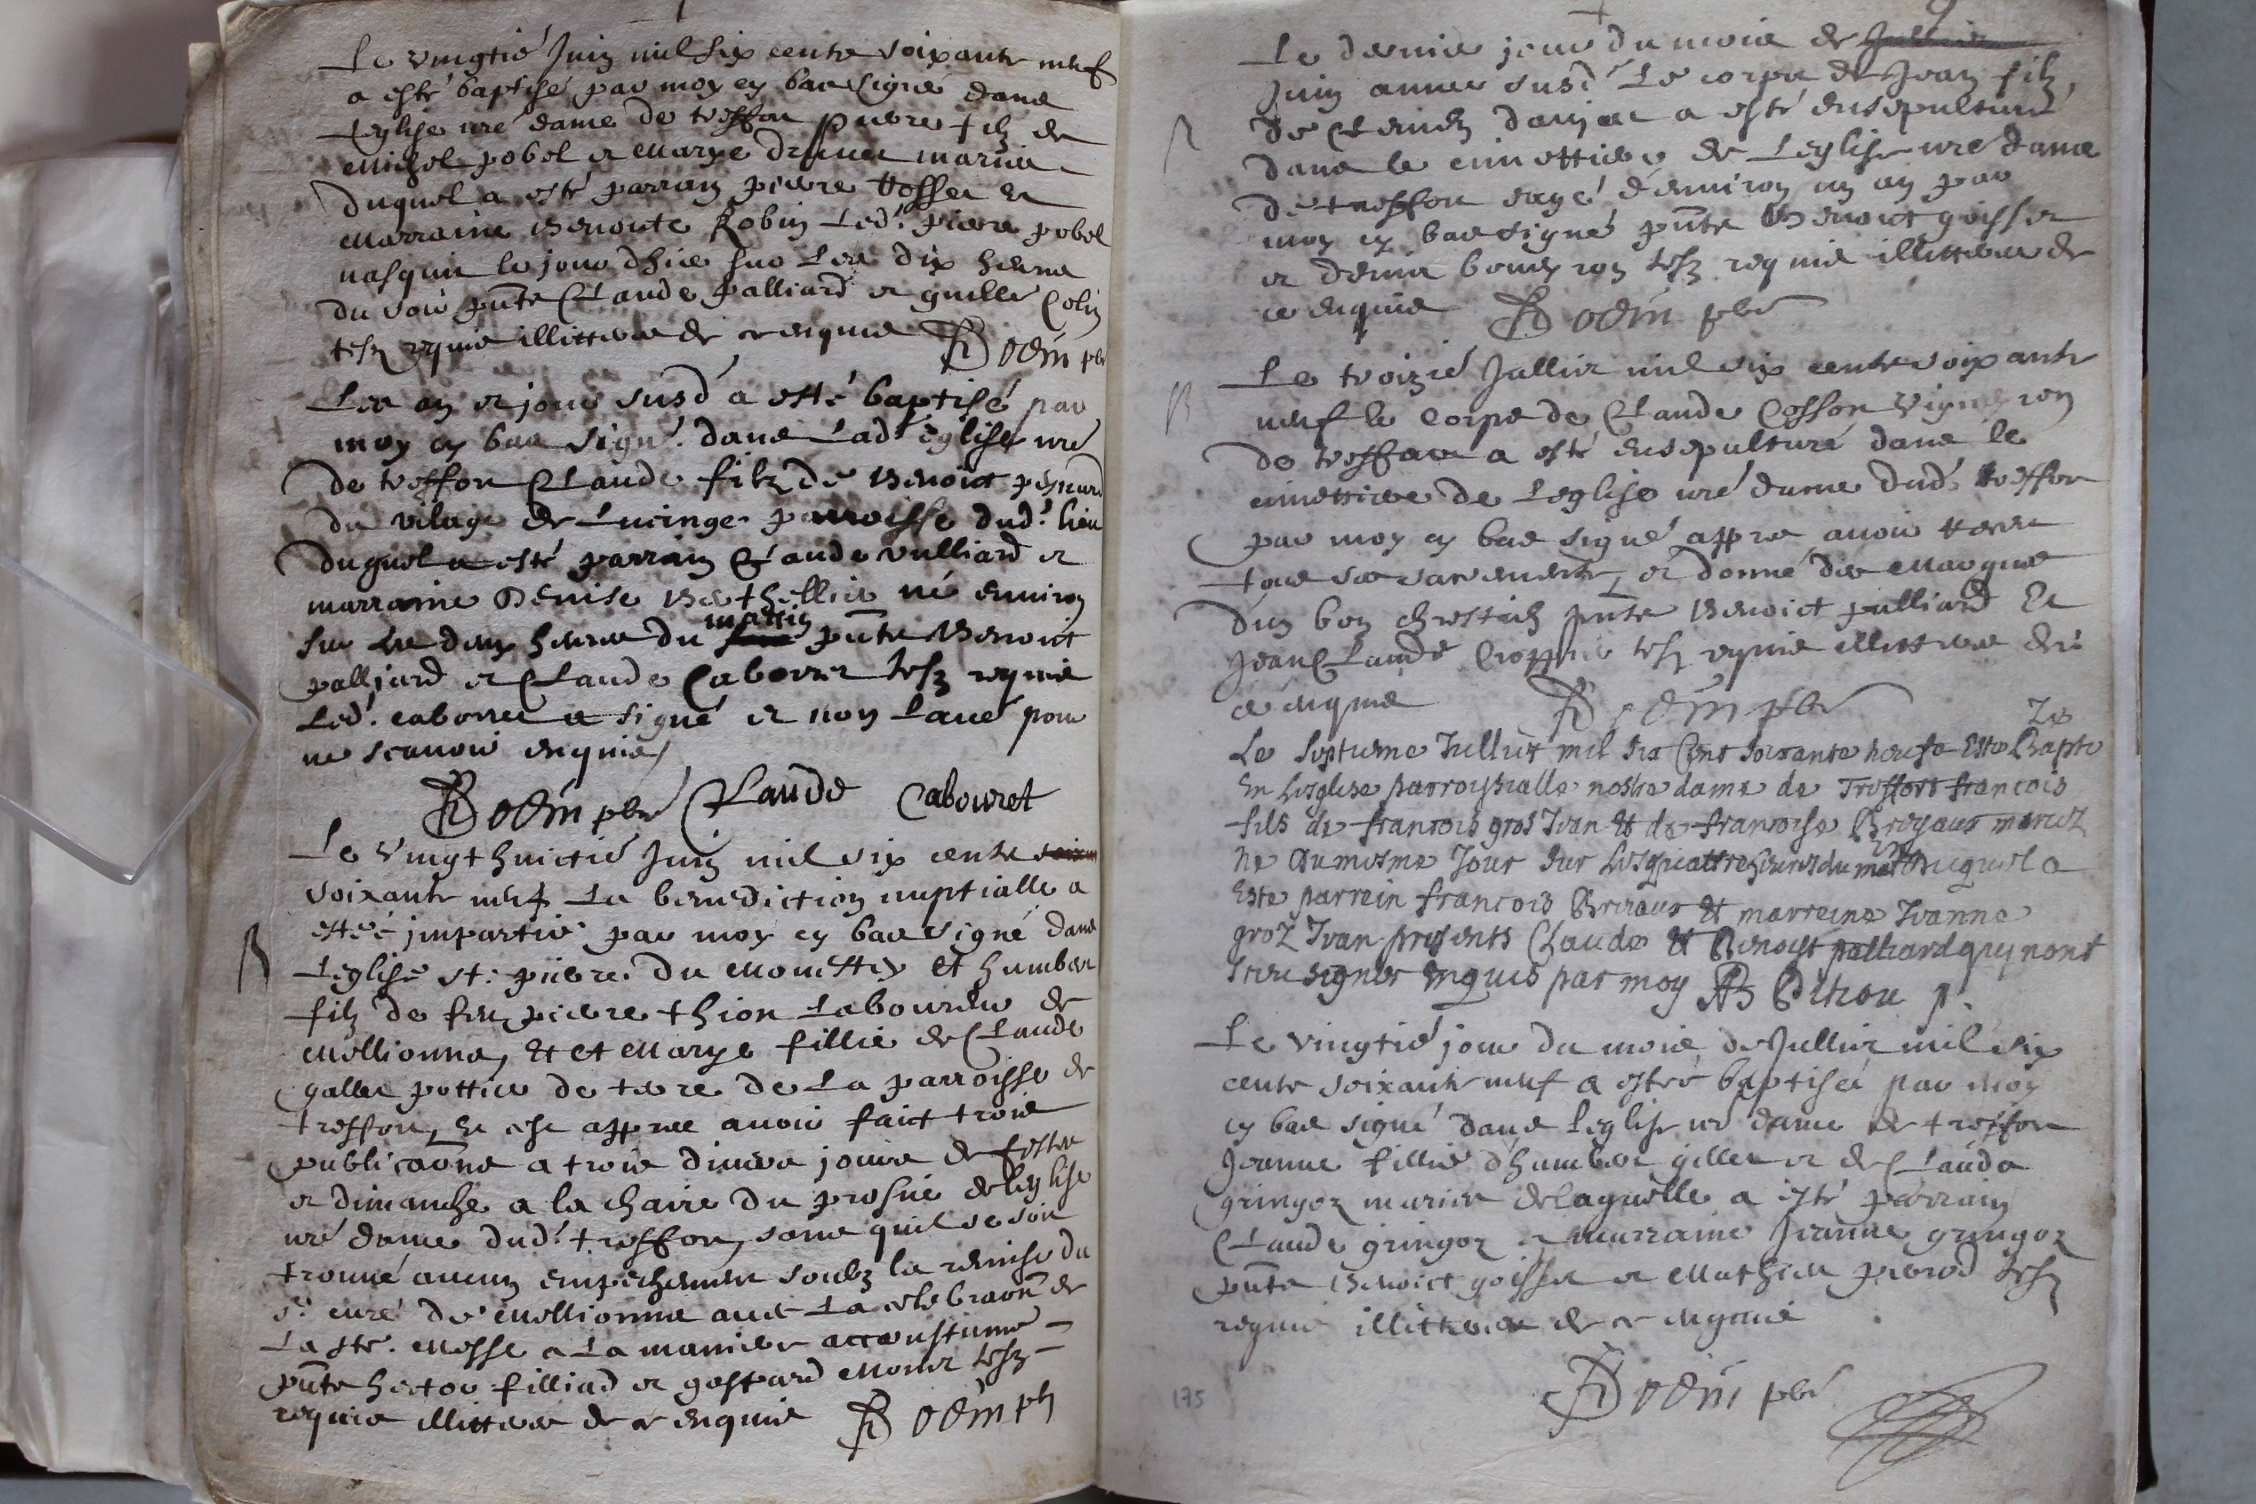 Le vingtié Juin mil six cents soixante neuf
a esté baptisé par moy cy bas signé dans
Leglise nre dame de treffon pierre filz de
Michel pobel et Marye mariés
duquel a esté parrain pierre et
Marraine Benoite Robin Led. pierre pobel
nasquit le jour dhier sur Les dix heures
du soir pnts Claude palliard et guille Colin
tesz requis illitteres de ce enquis Bodin pbr
Les an et jour susd a esté baptisé par
moy cy bas signé dans Lad. eglise nre
de treffon Claude filz de Benoict
du vilage de Lucinge parroisse dud. lieu
duquel a esté parrain Claude vulliard et
marraine Denise Berthellier né environ
sur les deux heures du mattin pnts Benoit
palliard et Claude Cabouret tesz requis
Led. cabouret a signé et non Lautre pour
ne scavoir enquis
Bodin pbr Claude Cabouret
Le vingthuictié Juin mil six cents
soixante neuf La benediction nuptialle a
estéé jmpartie par moy cy bas signé dans
Leglise st. pierre du Monestier Et humber
filz de feu pierre thion Laboureur de
Mellionna, Et et Marye fillie de Claude
gallet pottier de terre de La parroisse de
treffon, Et ce appres avoir faict trois
publicaons a trois divers jours de festes
et dimanche a la chaire du prosne de leglise
nre dame dud. treffon, sans quil se soit
trouvé aucun empechement soubz la remise du
sr. curé de Mellionna avec La celebraon de
La ste. Messe a La maniere accoustumé
pnts hector filliad et gaspard Monet tesz
requis illitteres de ce enquis Bodin pbr
Le dernie jour du mois de
Juin annee susd Le corps de Jean filz
de a esté ensepulturé
dans le cimettiere de Leglise nre dame
de treffon eagé denviron un an par
moy cy bas signé pnts Benoict goisset
et denis tesz requis illitteres de
ce enquis Bodin pbr
Le troizié Jullier mil six cents soixante
neuf le corps de Claude Cosson vigneron
de treffon a esté ensepulturé dans le
cimettiere de Leglise nre dame dud. treffon
par moy cy bas signé appres avoir
tous ses sacrements, et donné des Marques
dun bon chrestien pnts Benoict palliard Et
Jean Claude tesz requis illitteres de
ce enquis Bodin pbr
Le septieme Jullier mil six Cent soixante neufe Este Bapte
En Lesglise parroyssialle nostre dame de Treffort francois
fils de francois gros Jvan Et de francoise mariez
ne du mesme Jour sur Les quattre heures du matin duquel a
Este parrein francois Et marreine Jvanne
groz Jvan presents Claude Et Benoist palliard qui nont
sceu signer Enquis par moy
Le vingtié jour du mois de Jullier mil six
cents soixante neuf a estéé baptiséé par moy
cy bas signé dans Leglise nre dame de treffon
Jeanne fillie dhumber gillet et de Clauda
gringoz mariés de laquelle a esté parrain
Claude gringoz et marraine Jeanne gringoz
pnts Benoict goisset et Mathieu tesz
requis illitteres de ce enquis
Bodin pbr
175